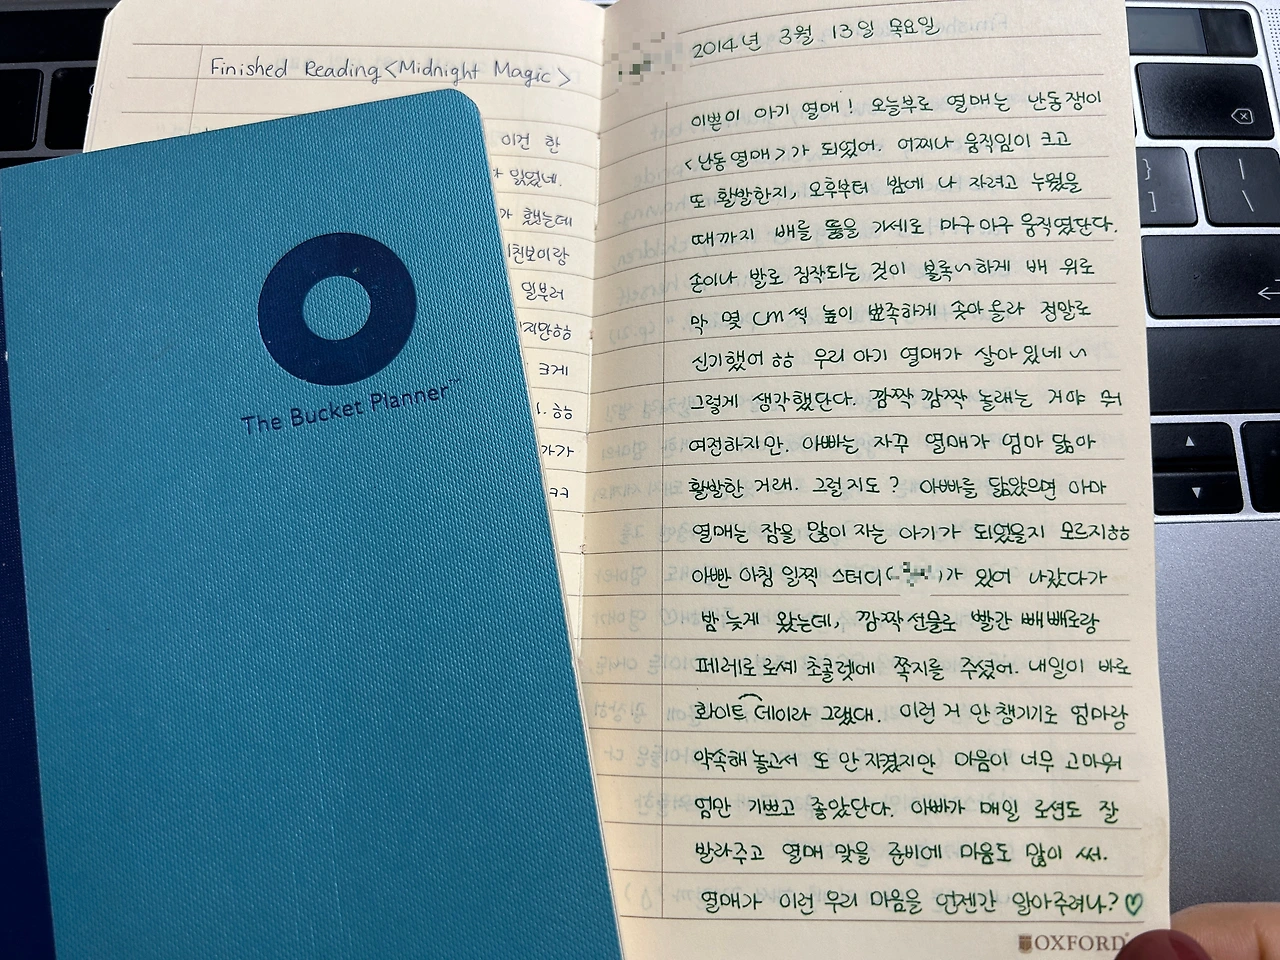 Finished Reading <Midnight Magic>
이건 한
읽었네.
가 했는데
친보이랑
일부러
지만ㅎㅎ
크게
. ㅎㅎ
가가
ㅋㅋ
The Bucket Planner™
2014년 3월 13일 목요일
이쁜이 아기 열매! 오늘부로 열매는 난동쟁이
<난동열매>가 되었어. 어찌나 움직임이 크고
또 활발한지, 오후부터 밤에 나 자려고 누웠을
때까지 배를 뚫을 기세로 마구마구 움직였단다.
손이나 발로 짐작되는 것이 볼록~하게 배 위로
막 몇 cm씩 높이 뾰족하게 솟아올라 정말로
신기했어 ㅎㅎ 우리 아기 열매가 살아있네~
그렇게 생각했단다. 깜짝깜짝 놀래는 거야 뭐
여전하지만. 아빠는 자꾸 열매가 엄마 닮아
활발한 거래. 그럴지도? 아빠를 닮았으면 아마
열매는 잠을 많이 자는 아기가 되었을지 모르지ㅎㅎ
아빤 아침 일찍 스터디( )가 있어 나갔다가
밤 늦게 왔는데, 깜짝선물로 빨간 빼빼로랑
페레로로셰 초콜렛에 쪽지를 주셨어. 내일이 바로
화이트데이라 그랬대. 이런 거 안 챙기기로 엄마랑
약속해 놓고서 또 안 지켰지만 마음이 너무 고마워
엄만 기쁘고 좋았단다. 아빠가 매일 로션도 잘
발라주고 열매 맞을 준비에 마음도 많이 써.
열매가 이런 우리 마음을 언젠간 알아주려나?♡
OXFORD